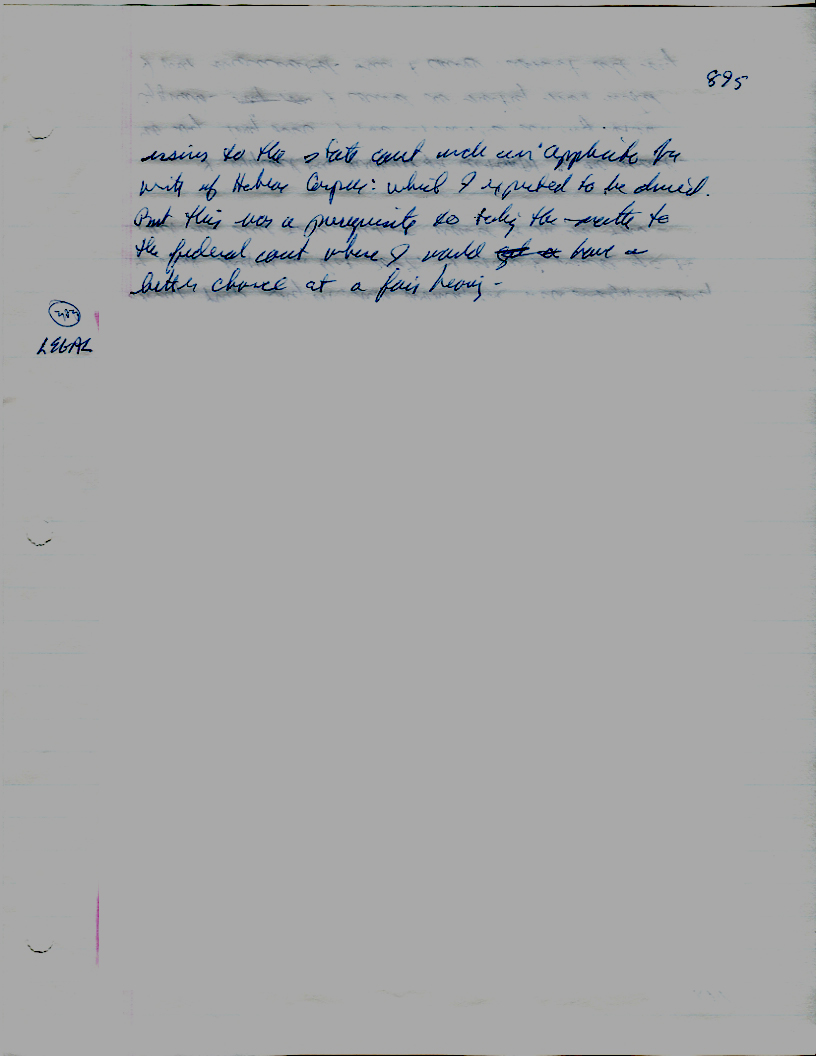 895
issues to the state court with an application for
writ of Hebeas Corpus: which I expected to be denied.
But this was a prerequisite to taking the matter to
the federal court where I would get a have a
better chance at a fair hearing -
LEGAL